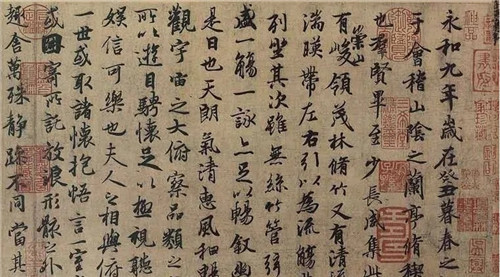 永和九年歲在癸丑暮春之
于會稽山陰之蘭亭脩稧
也羣賢畢至少長咸集此
有崇山峻領茂林脩竹又有清
湍暎帶左右引以為流觴
列坐其次雖無絲竹管弦
盛一觴一詠亦足以暢叙幽
是日也天朗氣清惠風和暢
觀宇宙之大俯察品類之
所以遊目騁懷足以極視聽
娛信可樂也夫人之相與俯
一世或取諸懷抱悟言一室
或因寄所託放浪形骸之外
趣舍萬殊靜躁不同當其